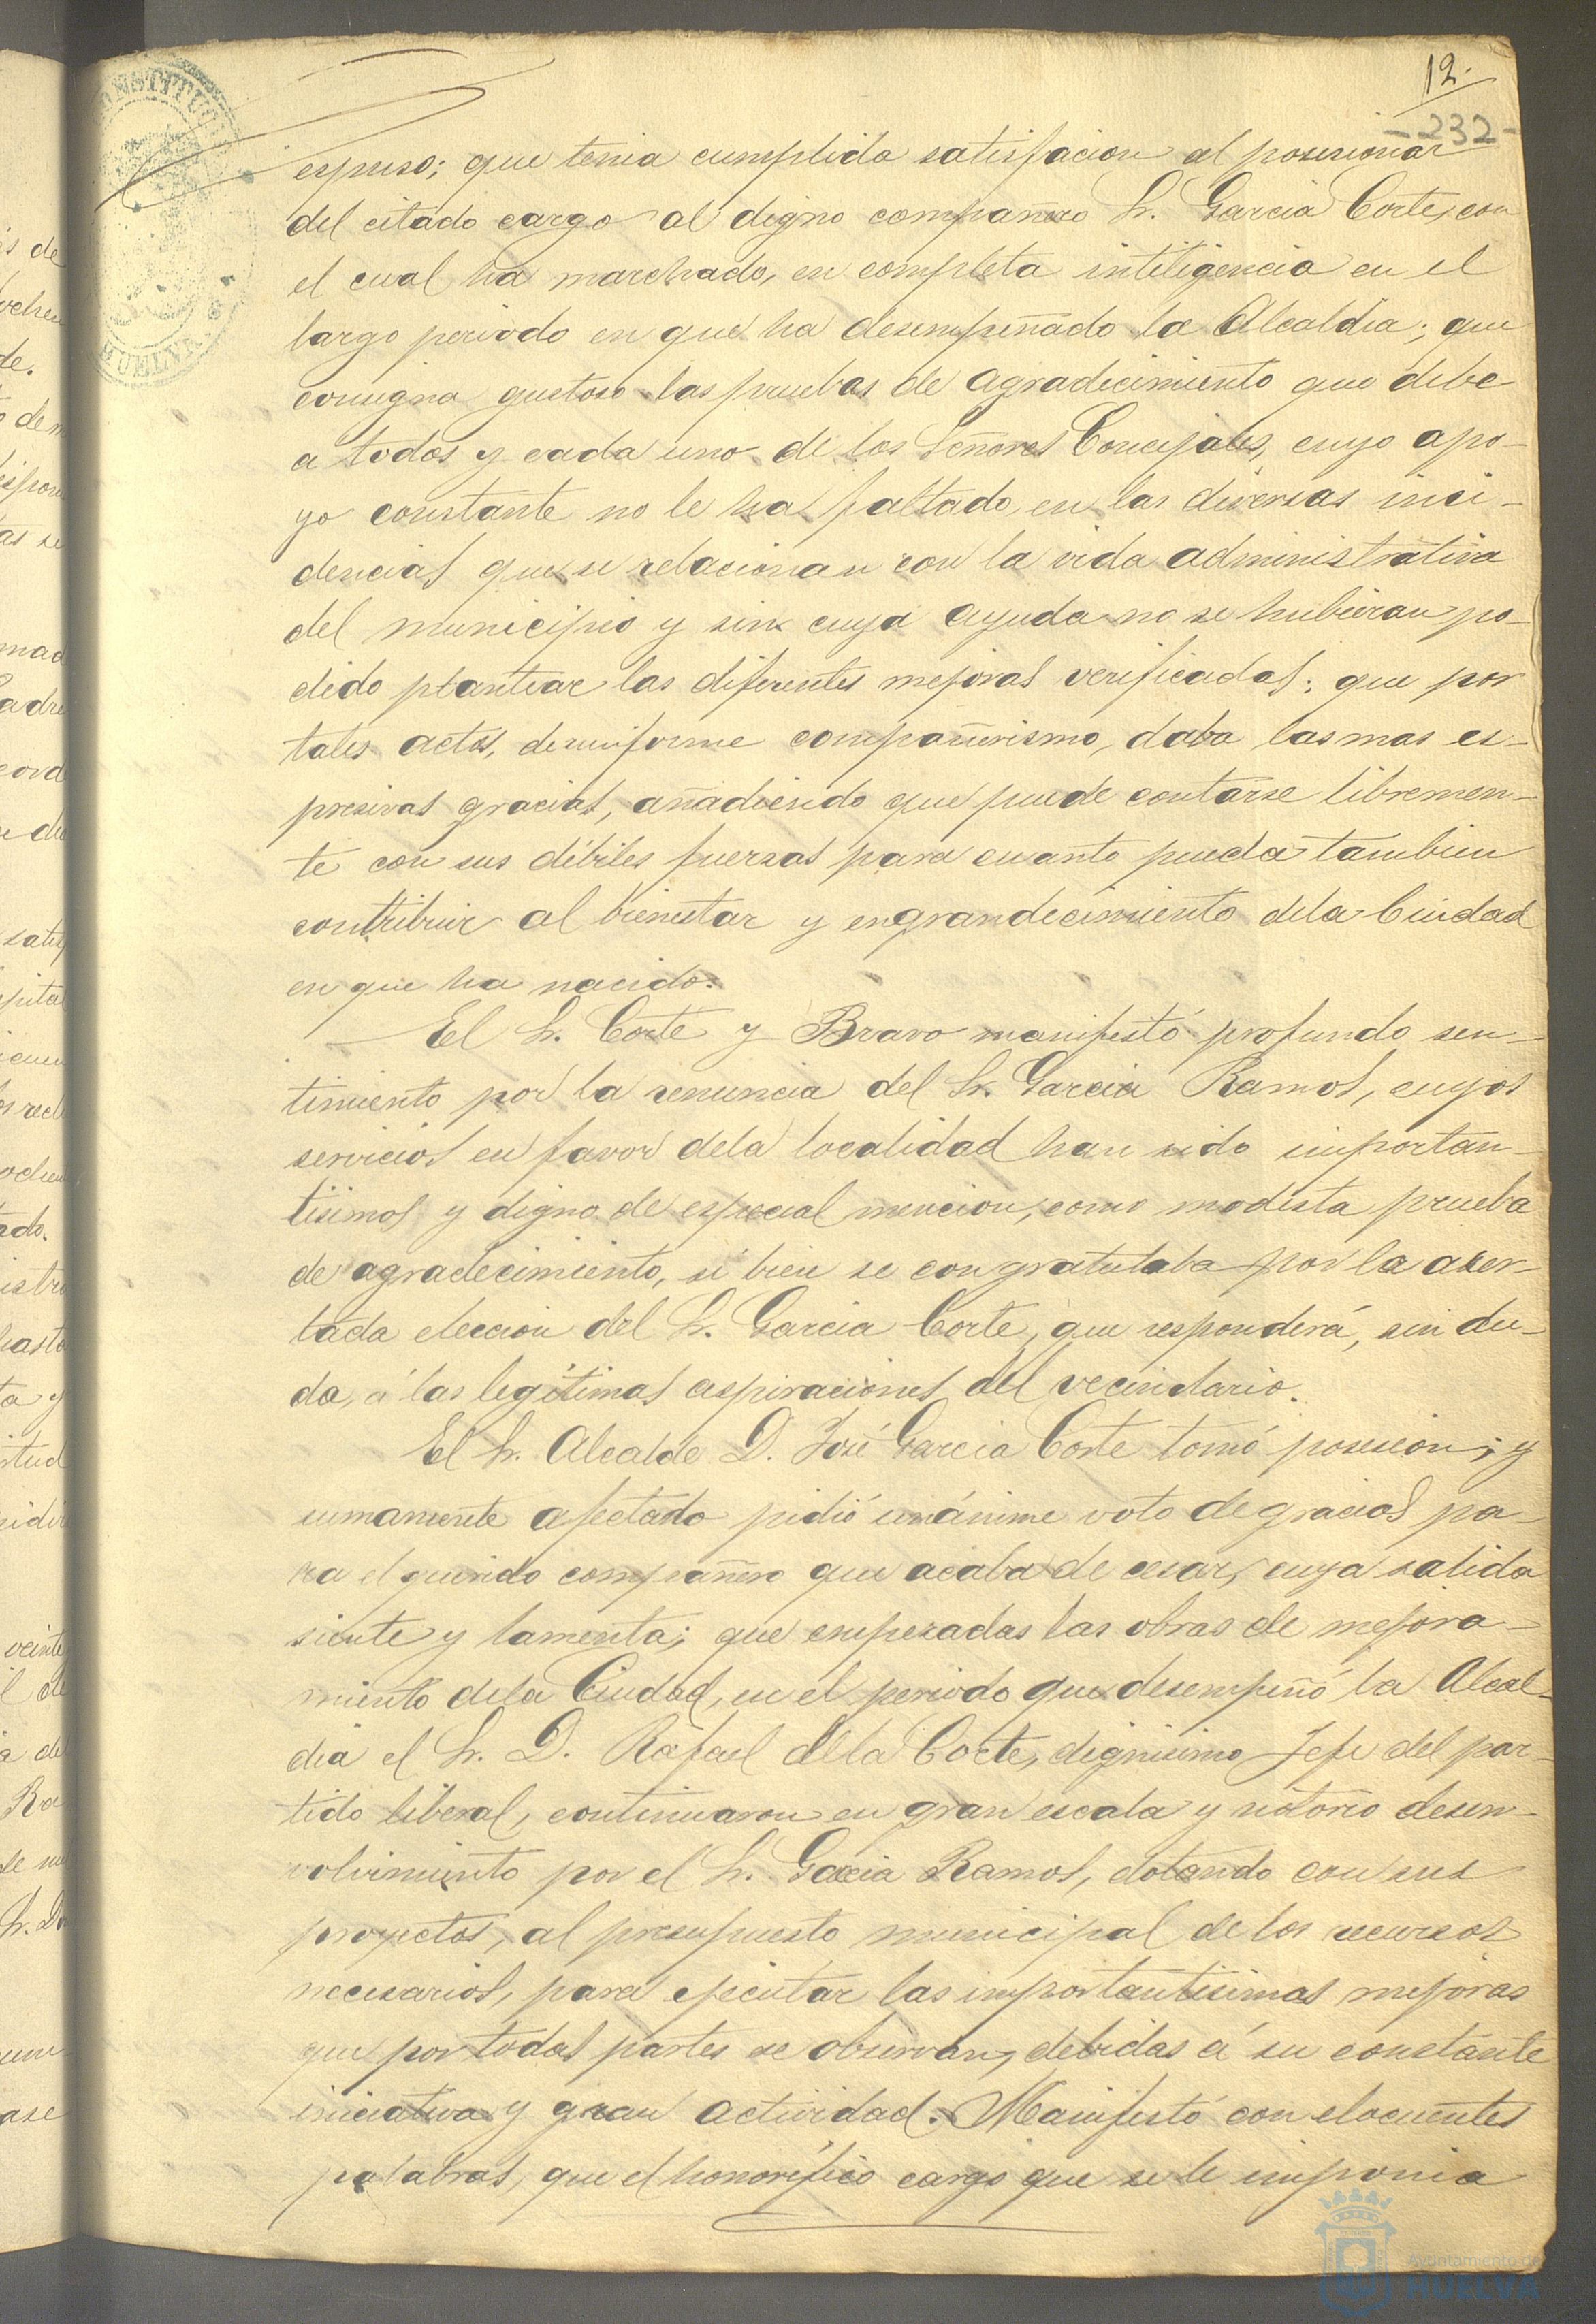 12.
-232-
espuso; que tenia cumplida satisfacion al posesionar
del citado cargo al digno compañero Sr. Garcia Corte, con
el cual ha marchado, en completa inteligencia en el
largo periodo en que ha desempeñado la Alcaldia; que
consigna gustoso las pruebas de agradecimiento que debe
a todos y cada uno de los Señores Concejales, cuyo apo-
yo constante no le ha faltado en las diversas inci-
dencias que se relacionan con la vida administrativa
del municipio y sin cuya ayuda no se hubieran po-
dido plantear las diferentes mejoras verificadas; que por
tales actos, de uniforme compañerismo, daba las mas es-
presivas gracias, añadiendo que puede contarse libremen-
te con sus débiles fuerzas para cuanto pueda tambien
contribuir al bienestar y engrandecimiento dela Ciudad
en que ha nacido.
El Sr. Corte y Bravo manifestó profundo sen-
timiento por la renuncia del Sr. Garcia Ramos, cuyos
servicios en favor dela localidad han sido importan-
tisimos y digno de especial mencion, como modesta prueba
de agradecimiento, si bien se congratulaba por la acer-
tada eleccion del Sr. Garcia Corte, que responderá, sin du-
da, á las legítimas aspiraciones del vecindario.
El Sr. Alcalde D. José Garcia Corte tomó posesion; y
sumamente afectado pidió unánime voto de gracias pa-
ra el querido compañero que acaba de cesar, cuya salida
siente y lamenta; que empezadas las obras de mejora-
miento dela Ciudad, en el periodo que desempeñó la Alcal-
dia el Sr. D. Rafael dela Corte, dignisimo Jefe del par-
tido liberal, continuaron en gran escala y notorio desen-
volvimiento por el Sr. Garcia Ramos, dotando con sus
proyectos, al presupuesto municipal de los recursos
necesarios, para ejecutar las importantisimas mejoras
que por todas partes se observan, debidas á su constante
iniciativa y gran actividad. Manifestó con elocuentes
palabras, que el honorífico cargo que se le imponia
Ayuntamiento de
HUELVA